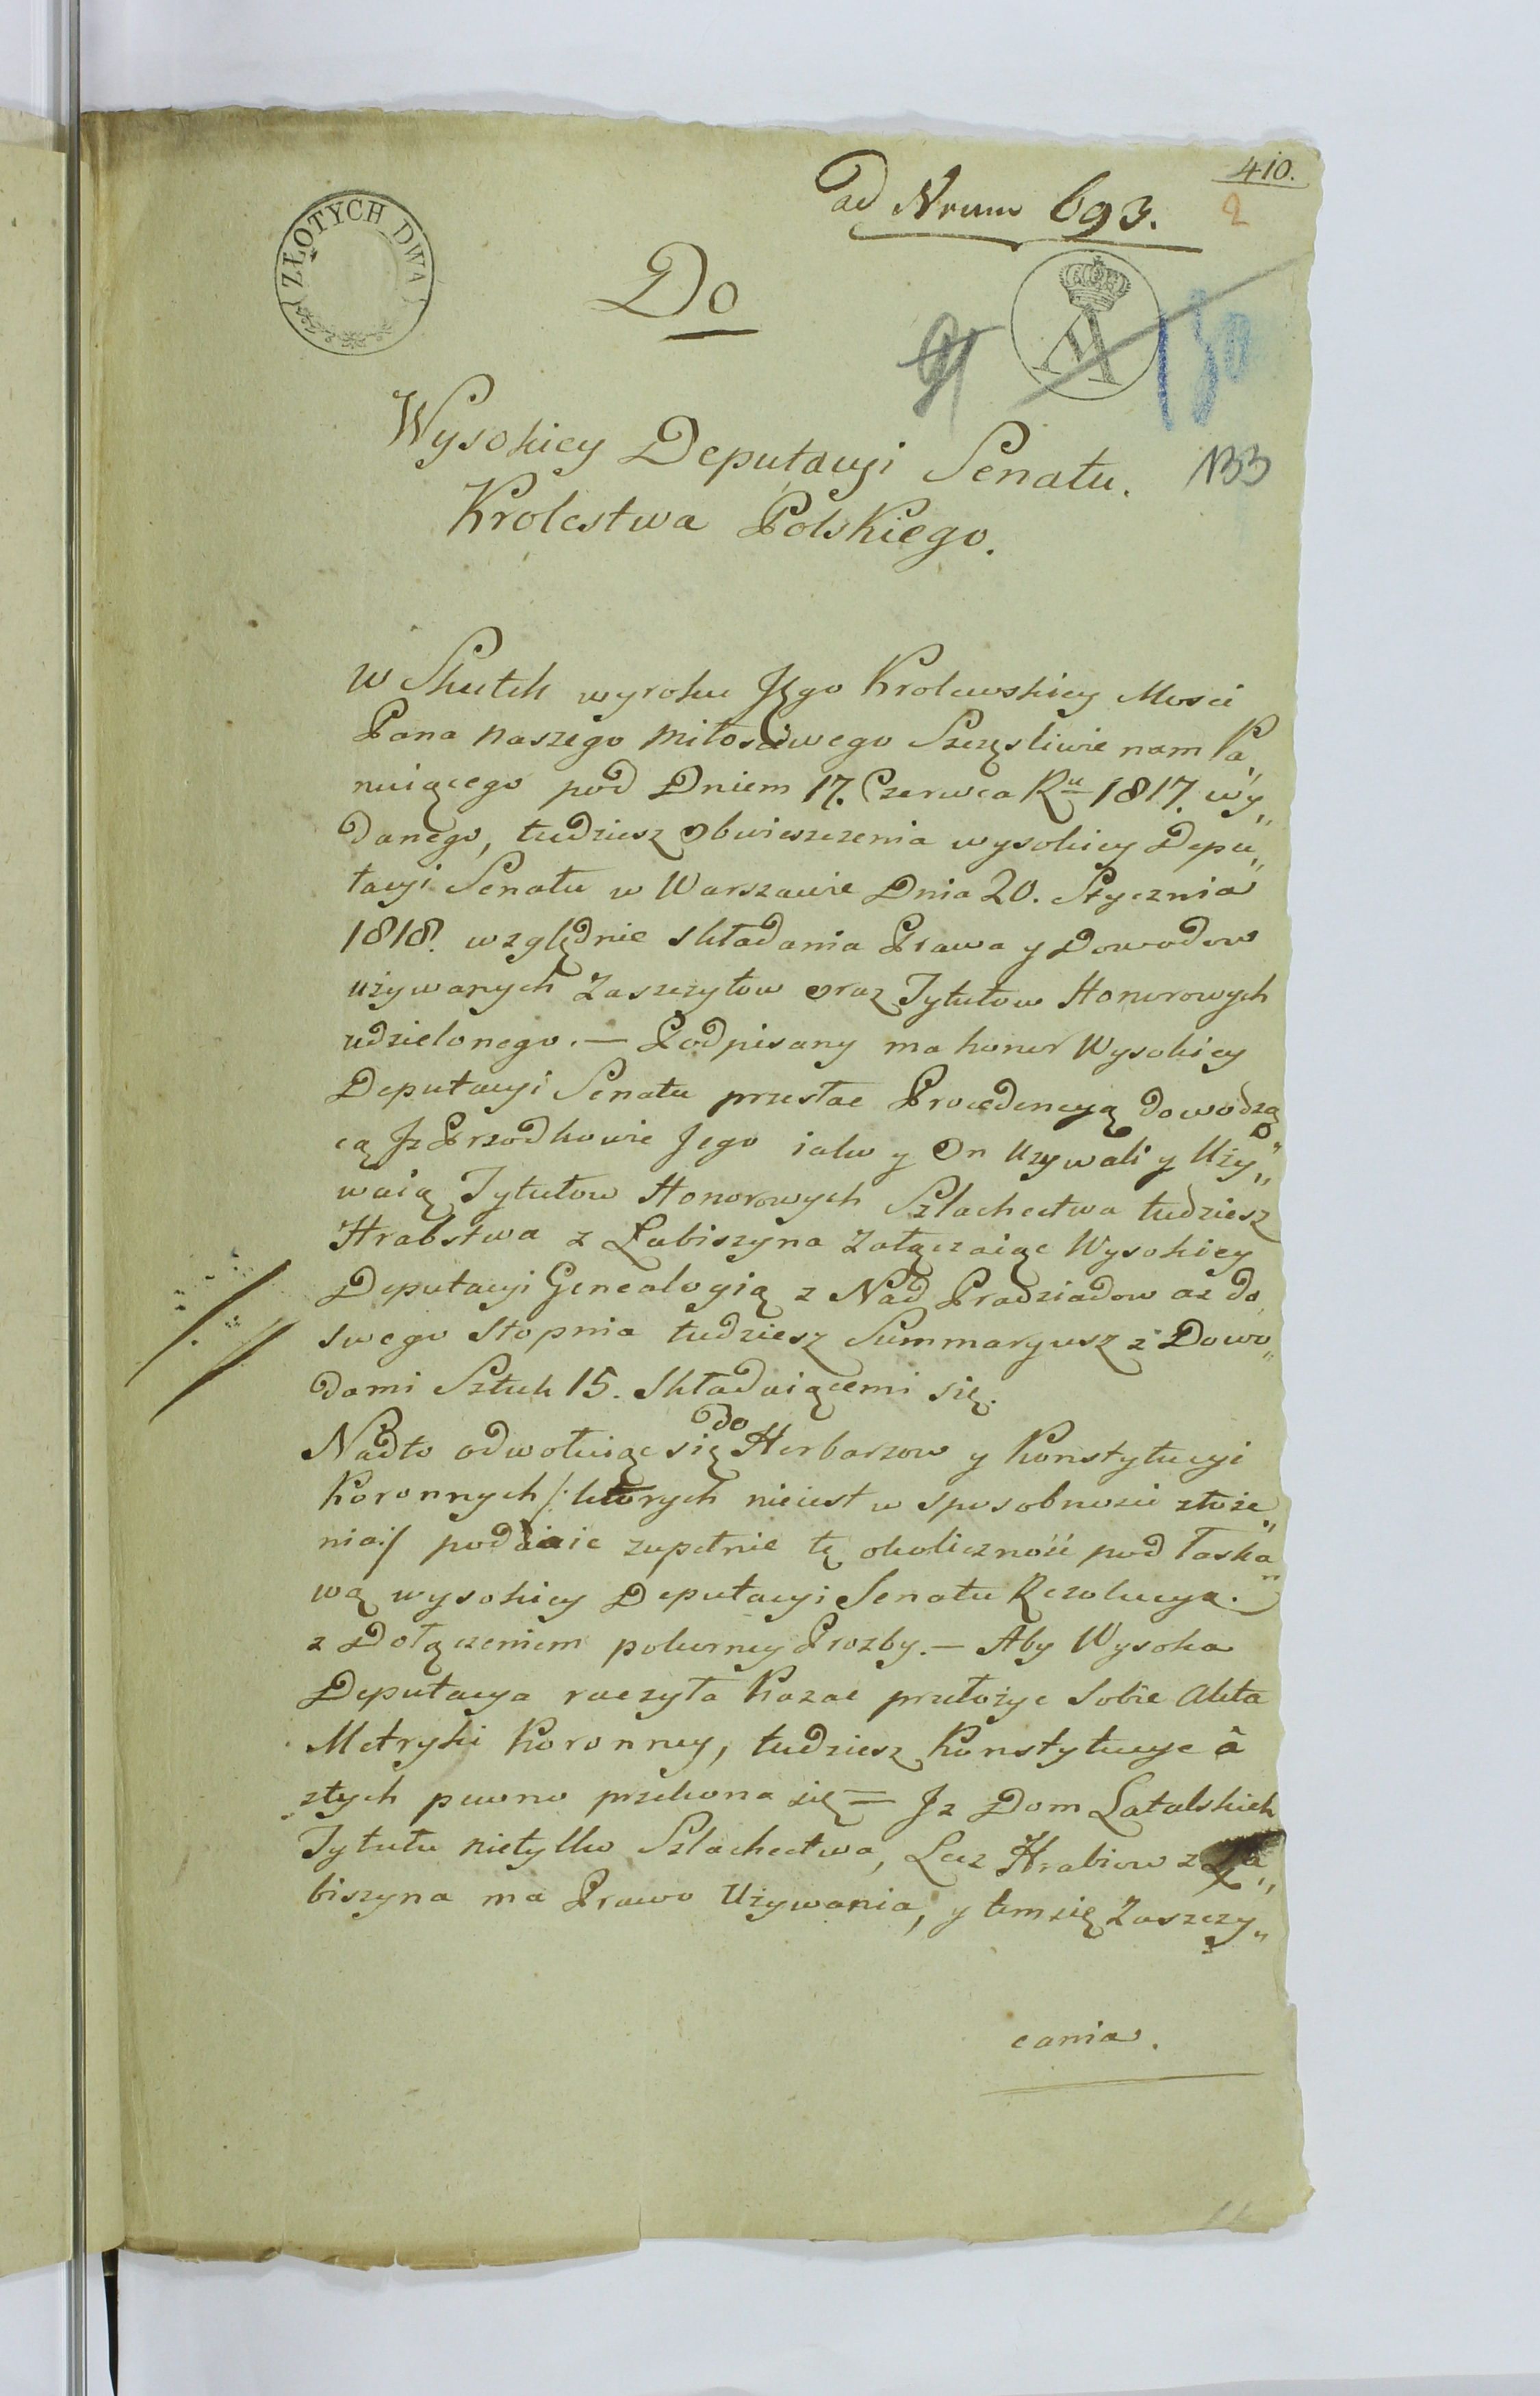 410.
ad Nrum 693.
2
ZŁOTYCH DWA
Do
A
91
130
133
Wysokiey Deputacyi Senatu.
Krolestwa Polskiego.
W Skutek wyroku Jego Krolewskiey Mosci
Pana naszego Miłosciwego Szczęsliwie nam Pa„
nuiącego pod Dniem 17. Czerwca Ru 1817. wy„
danego, tudziesz obwieszczenia wysokiey Depu„
tacyi Senatu w Warszawie Dnia 20. Stycznia
1818. względnie składania Prawa y Dowodow
używanych Zaszczytow oraz Tytułow Honorowych
udzielonego. — Podpisany ma honor Wysokiey
Deputacyi Senatu przesłac Procedencyą dowodzą„
cą Jż Przodkowie Jego iako y On Uzywali y Uży„
waią Tytułow Honorowych Szlachectwa tudziesz
Hrabstwa z Labiszyna Załączaiąc Wysokiey
Deputacyi Genealogią z Nad Pradziadow az do
swego Stopnia tudziesz Summaryusz z Dowo„
dami Sztuk 15. Składaiącemi się.
Nadto odwołuiąc się do Herbarzow y Konstytucyi
Koronnych /: ktorych nieiest w sposobnosci złoże„
nia :/ poddaie zupełnie tę okoliczność pod Łaska„
wą wysokiey Deputacyi Senatu Rezolucyą.
z Dołączeniem pokorney Prozby. — Aby Wysoka
Deputacya raczyła Kazac przełożyc Sobie Akta
Metryki Koronney, tudziesz Konstytucye à
ztych pewno przekona się = Jz Dom Latalskich
Tytułu nietylko Szlachectwa, Lecz Hrabiow z La„
biszyna ma Prawo Używania, y tem się Zaszczy„
cania.